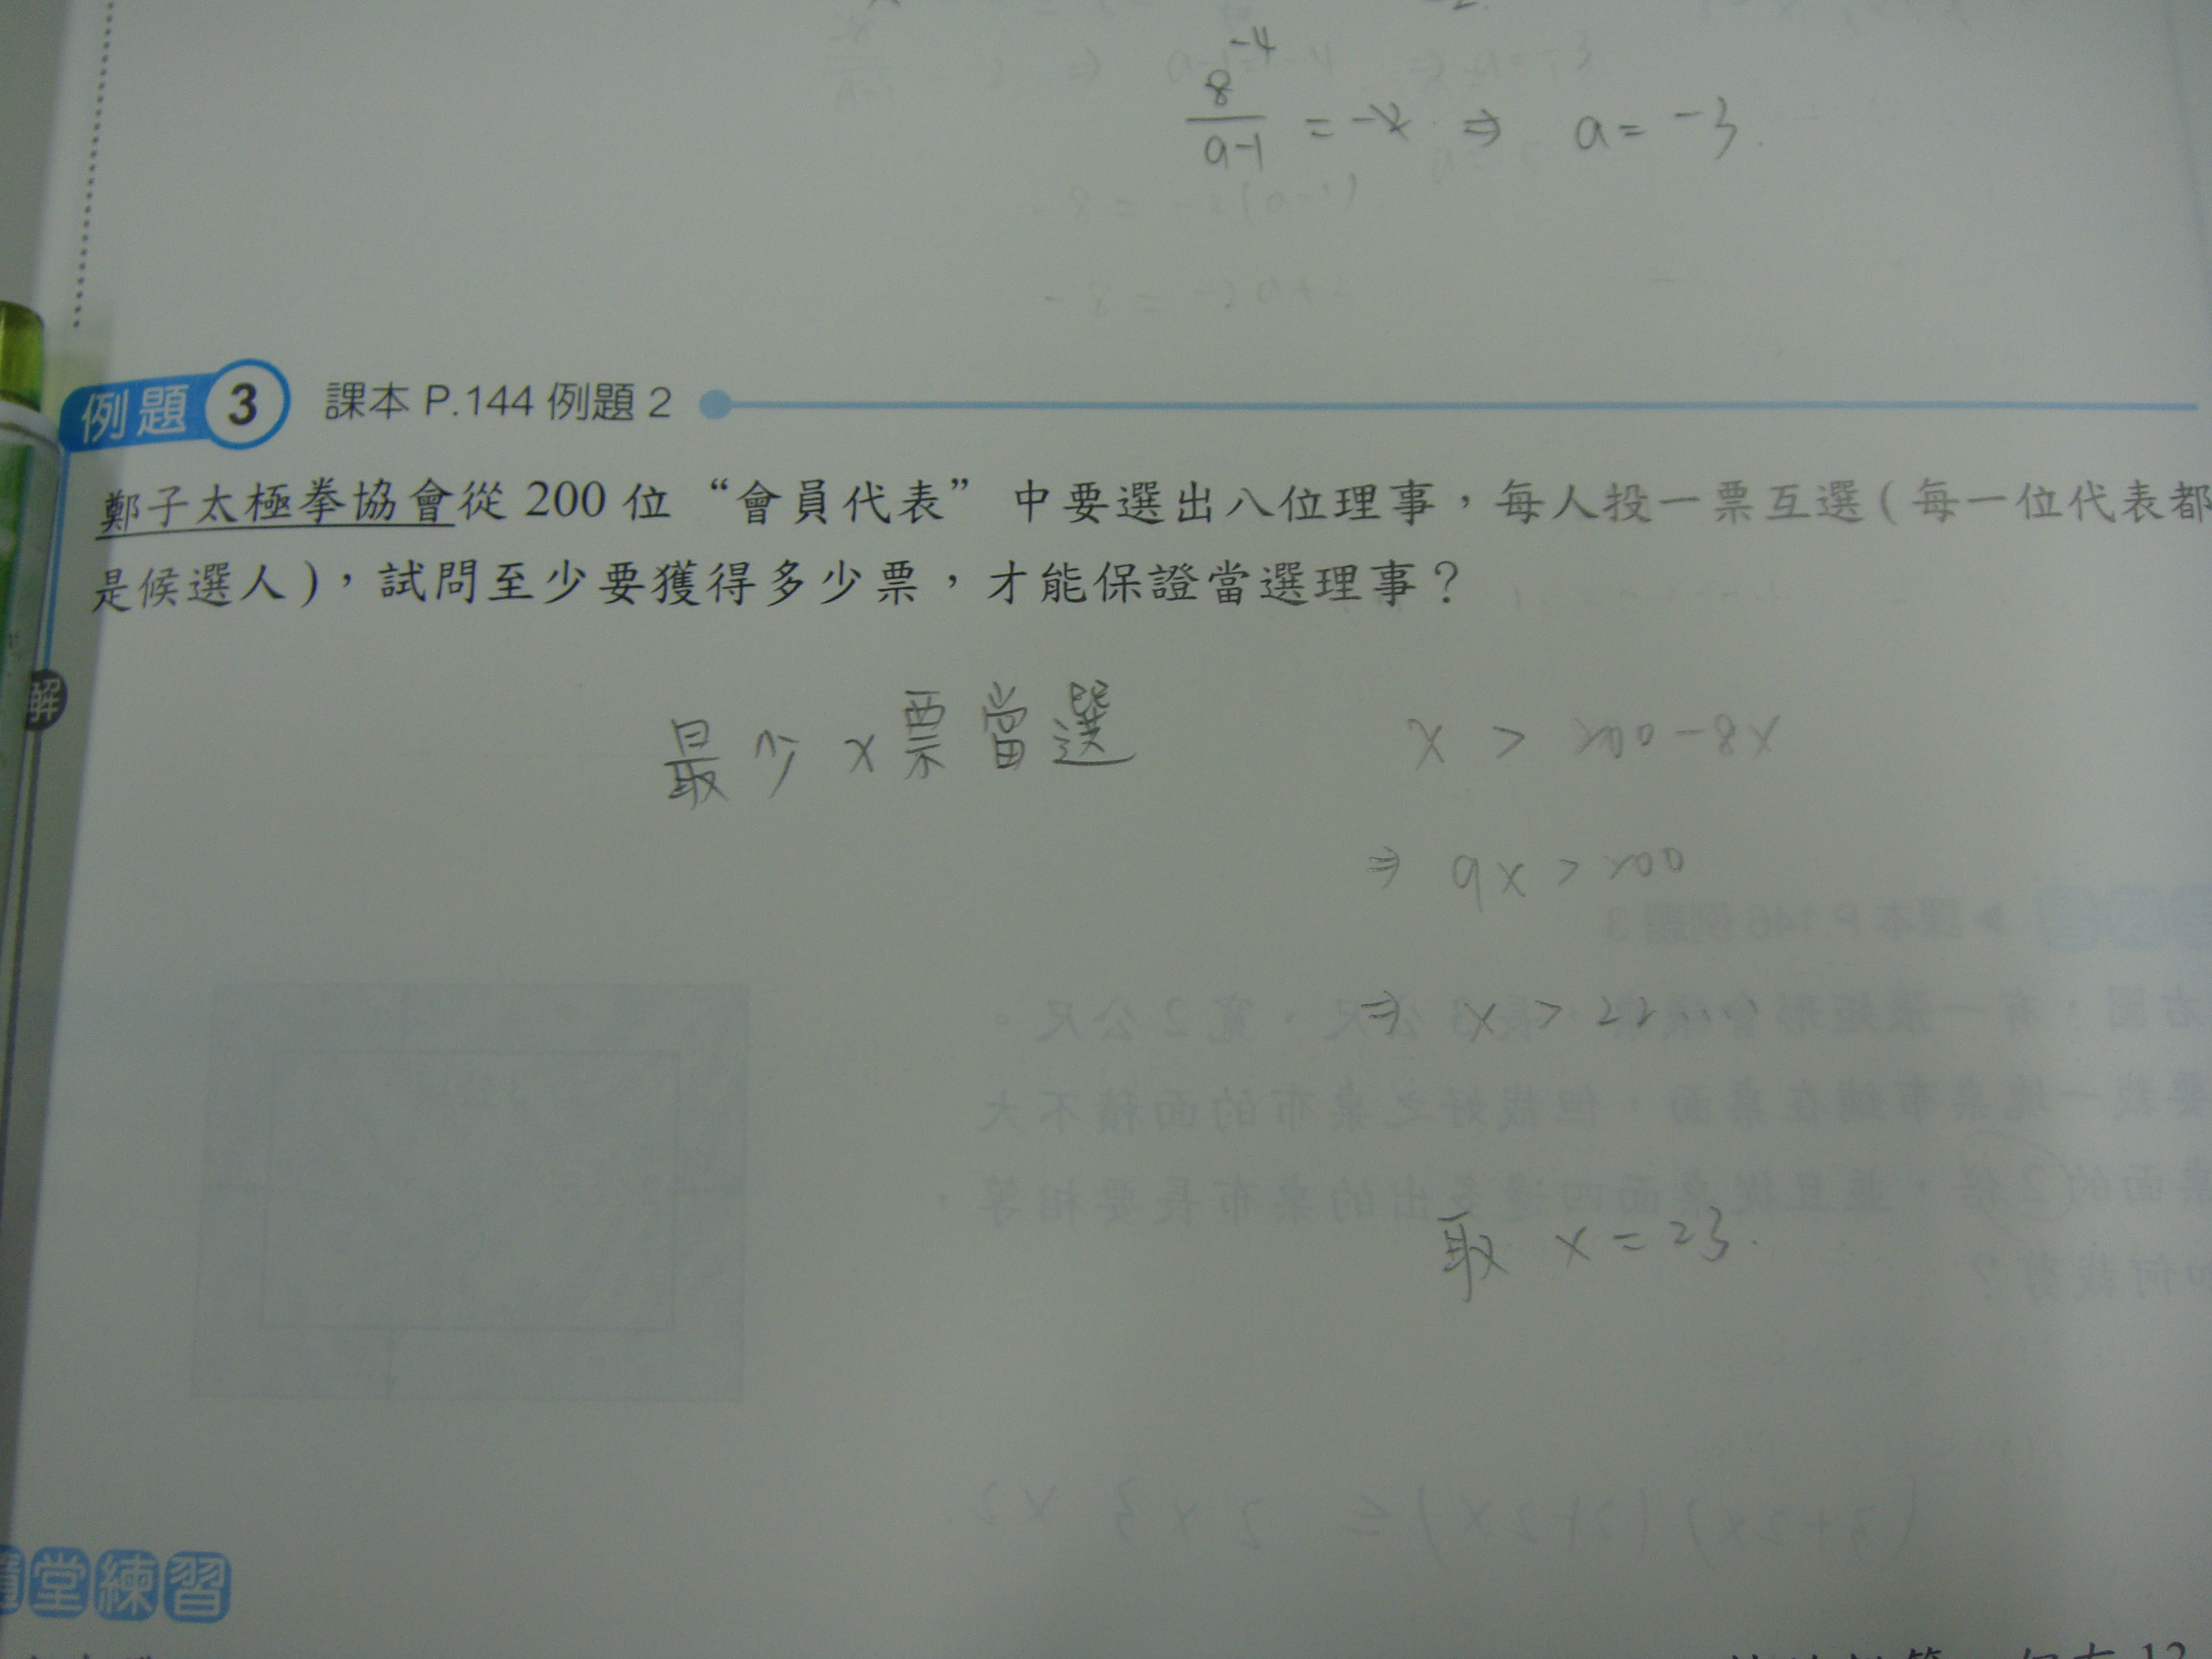 8 -4
a-1 = -2 ⇒ a = -3
例題 3 課本 P.144 例題 2
鄭子太極拳協會從 200 位“會員代表”中要選出八位理事，每人投一票互選(每一位代表都
是候選人)，試問至少要獲得多少票，才能保證當選理事？
解
最少 x 票當選 x > 200-8x
⇒ 9x > 200
⇒ x > 22....
取 x = 23.
堂練習